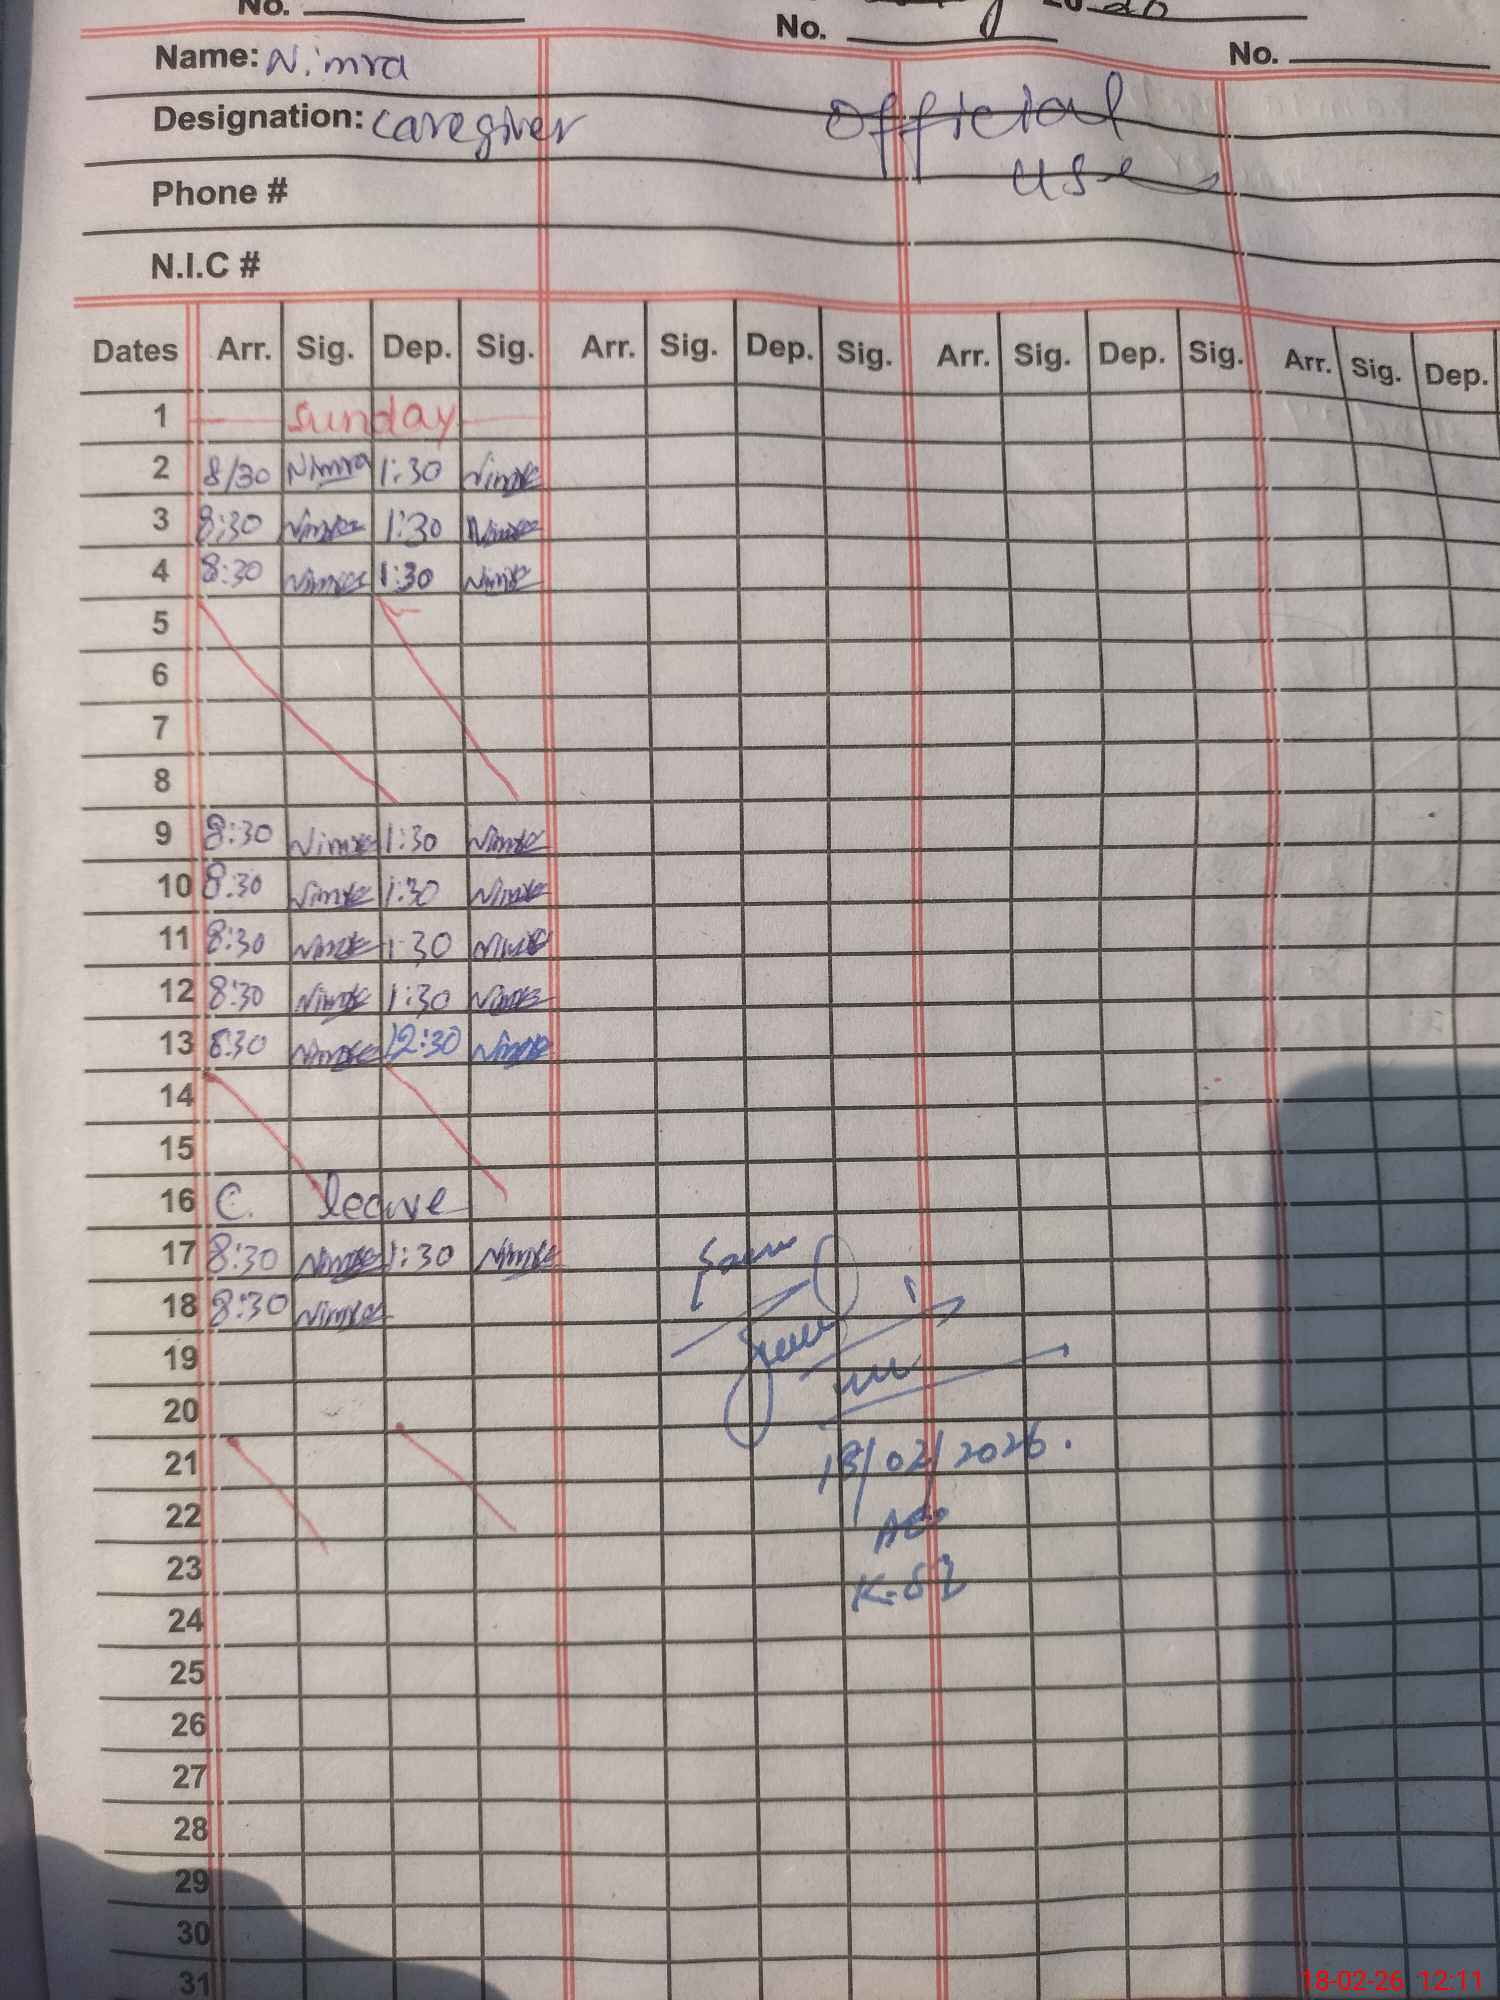 No.
No.
No.
Name: Nimra
Designation: caregiver
Official
use
Phone #
N.I.C #
Dates Arr. Sig. Dep. Sig. Arr. Sig. Dep. Sig. Arr. Sig. Dep. Sig. Arr. Sig. Dep.
1 Sunday
2 8/30 Nimra 1:30 Nimra
3 8:30 Nimra 1:30 Nimra
4 8:30 Nimra 1:30 Nimra
5
6
7
8
9 8:30 Nimra 1:30 Nimra
10 8:30 Nimra 1:30 Nimra
11 8:30 Nimra 1:30 Nimra
12 8:30 Nimra 1:30 Nimra
13 8:30 Nimra 12:30 Nimra
14
15
16 C. leave
17 8:30 Nimra 1:30 Nimra
18 8:30 Nimra
19
20
21
18/02/2026.
22
23
24
25
26
27
28
29
30
31
18-02-26 12:11